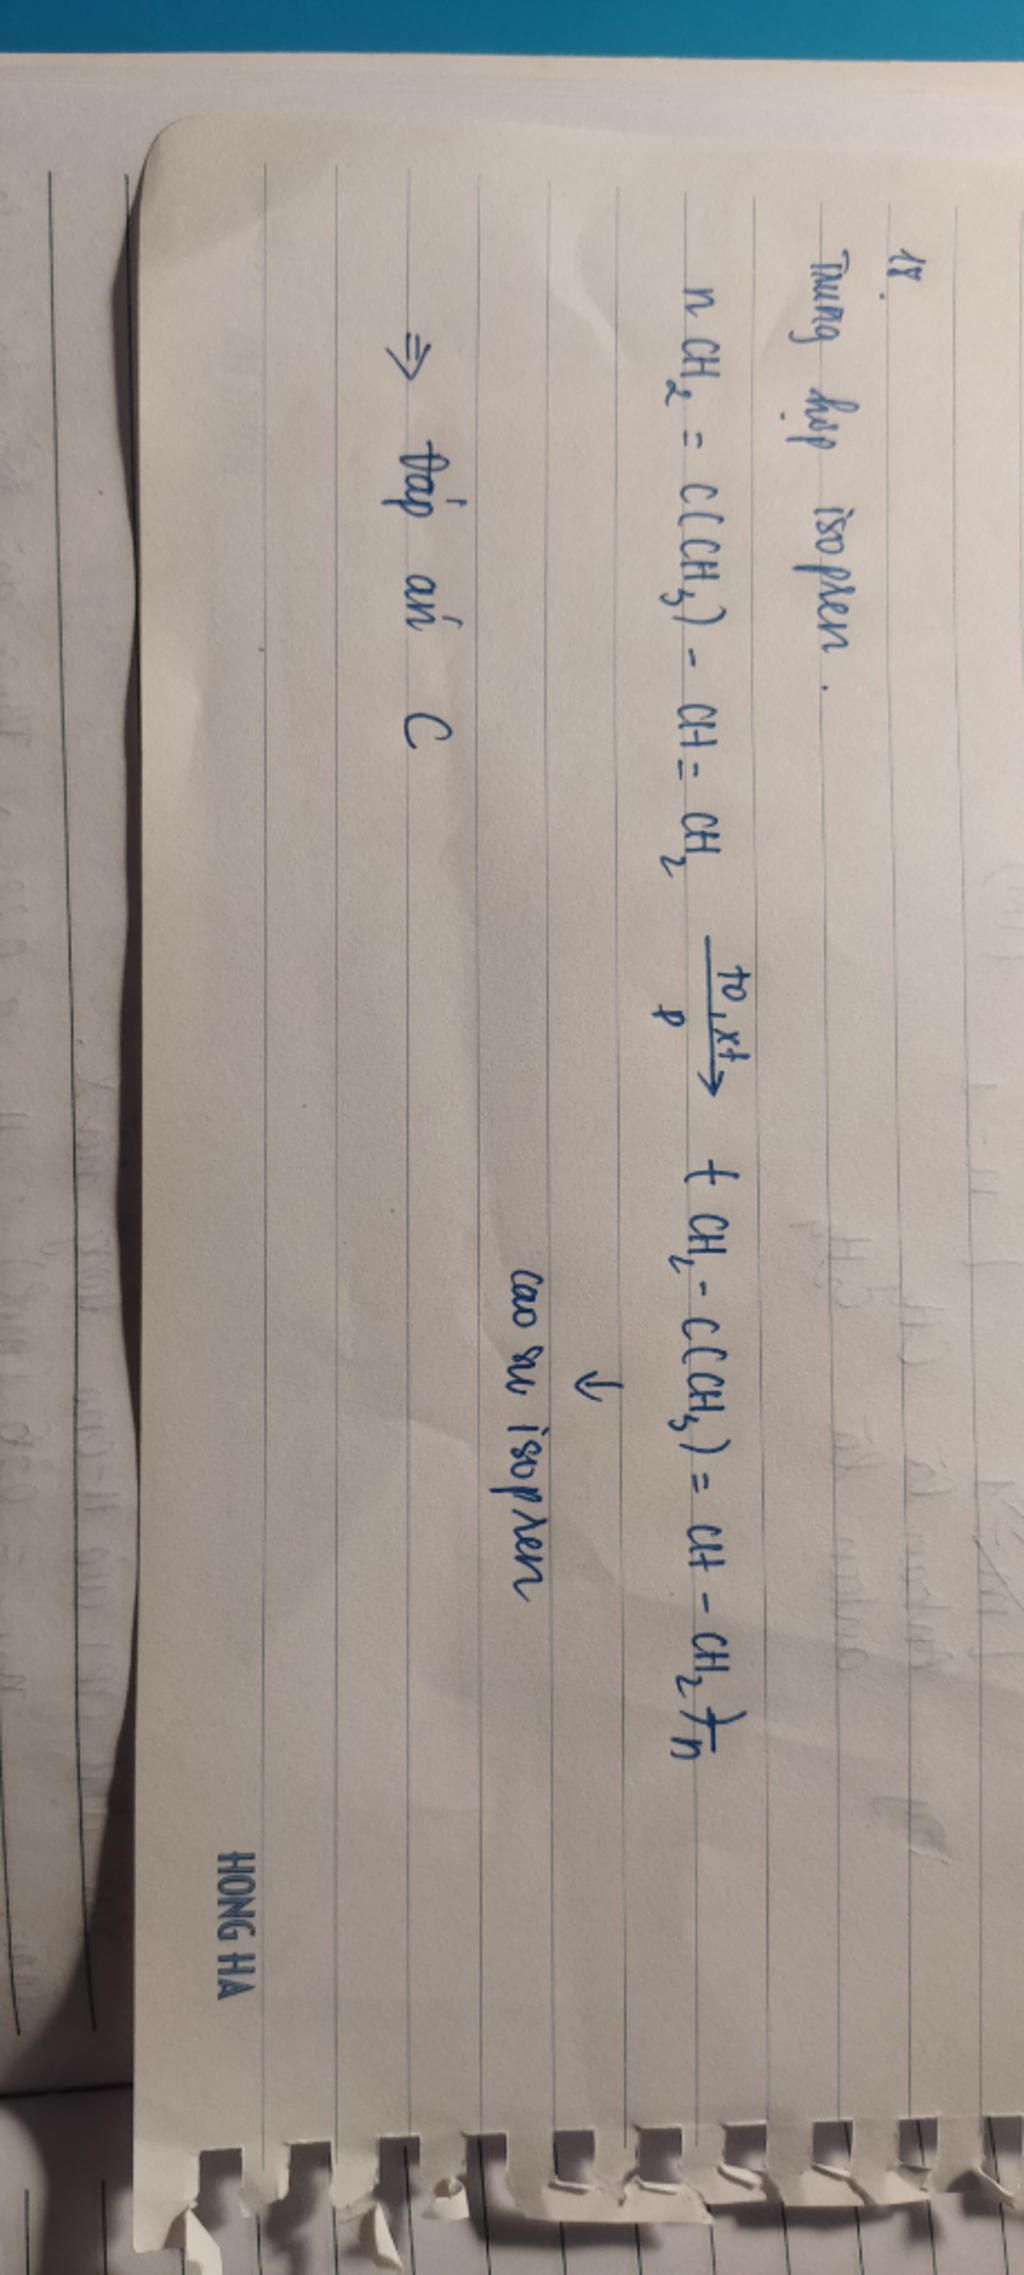 18.
Trùng hợp isopren.
n CH₂ = C(CH₃) - CH = CH₂ $\xrightarrow[p]{t^o, xt}$ (CH₂ - C(CH₃) = CH - CH₂)n
↓
cao su isopren
⇒ Đáp án C
HONG HA